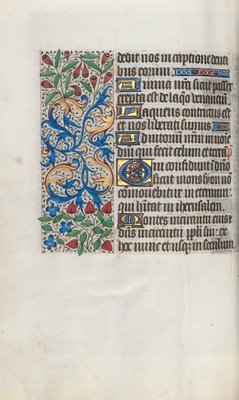 dedit nos in captione denti
bus eorum
Anima nr̃a sicut passer
erepta est de laq̃o venanciũ
Laqueus contritus est
et nos liberati sumus
Adiutoriũ nr̃m in nõie
dñi qui fecit celum et terrã
Qui confidunt ĩ dño
sicut mons syon nõ
commovebitur in eternum
qui hĩtat in iherusalem
Montes in circuitu eius
et dñs in circuitu ppl̃i sui ex
hoc nunc et usq̃ in seculum